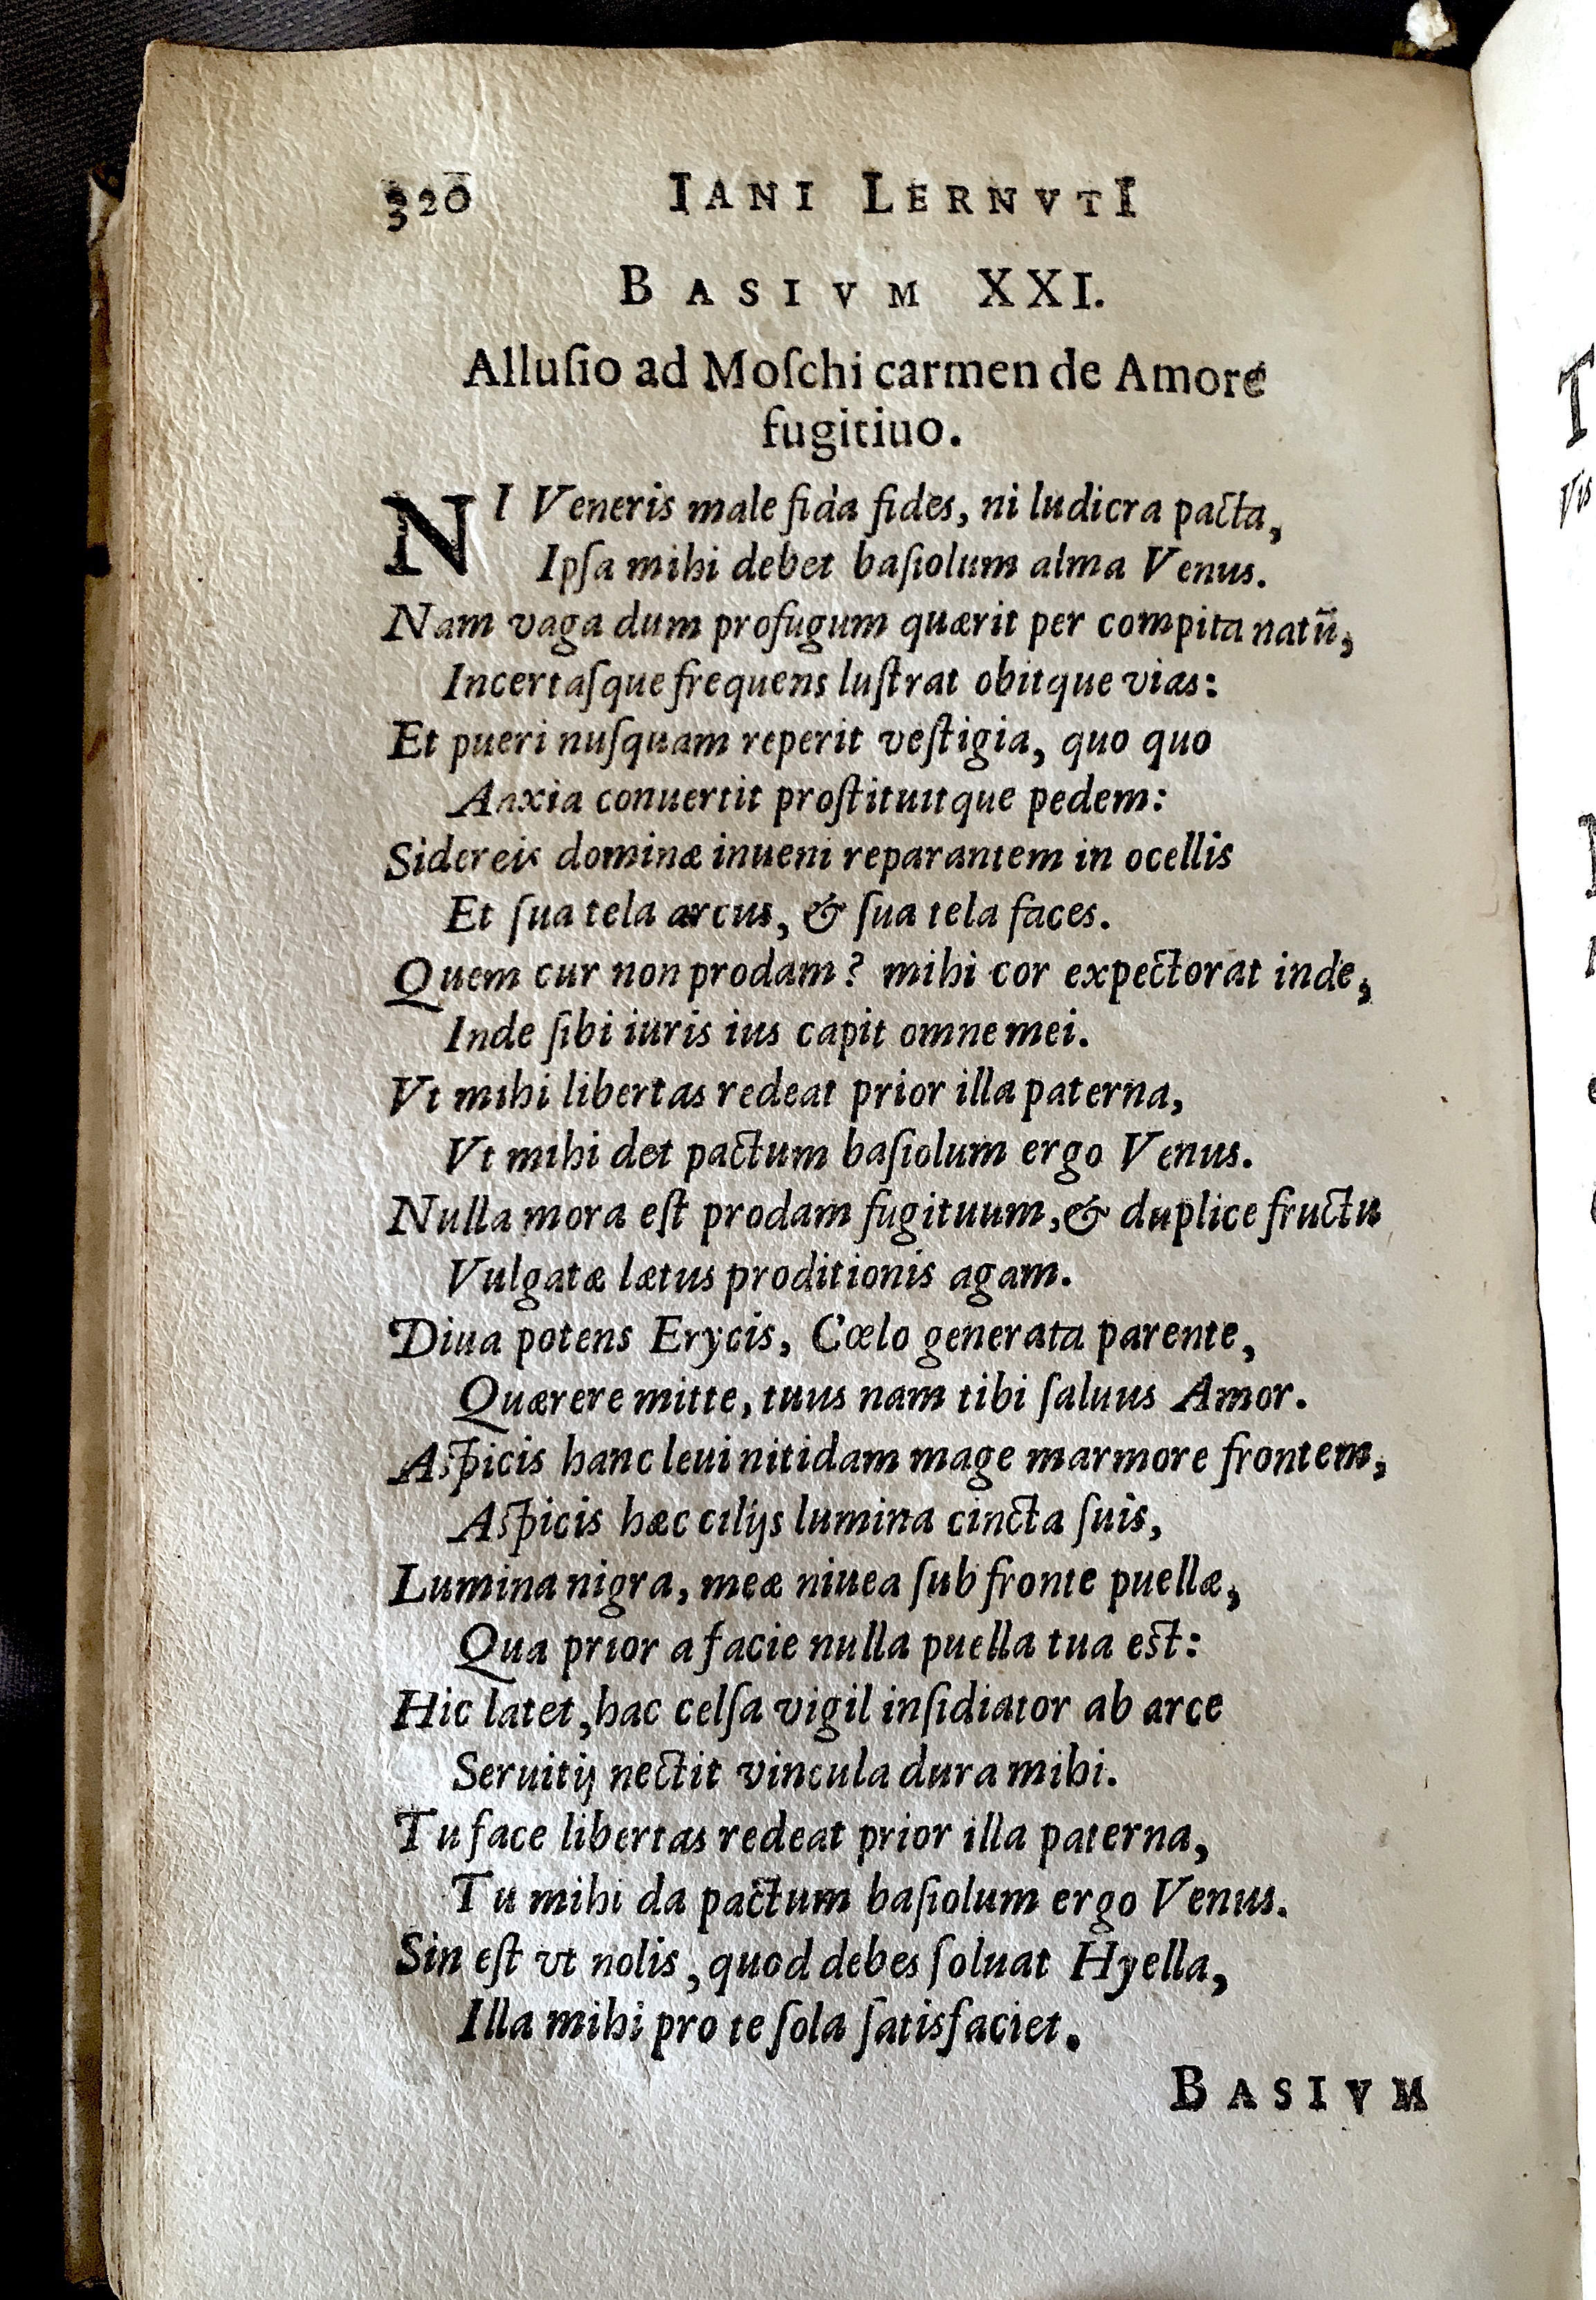 320 IANI LERNVTI
BASIVM XXI.
Alluſio ad Moſchi carmen de Amore
fugitiuo.
NI Veneris male fida fides, ni ludicra pacta,
Ipſa mihi debet baſiolum alma Venus.
Nam vaga dum profugum quærit per compita natũ,
Incertaſque frequens luſtrat obitque vias:
Et pueri nuſquam reperit veſtigia, quo quo
Anxia conuertit proſtituitque pedem:
Sidereis dominæ inueni reparantem in ocellis
Et ſua tela arcus, & ſua tela faces.
Quem cur non prodam? mihi cor expectorat inde,
Inde ſibi iuris ius capit omne mei.
Vt mihi libertas redeat prior illa paterna,
Vt mihi det pactum baſiolum ergo Venus.
Nulla mora eſt prodam fugituum, & duplice fructu
Vulgatæ lætus proditionis agam.
Diua potens Erycis, Cœlo generata parente,
Quærere mitte, tuus nam tibi ſaluus Amor.
Aſpicis hanc leui nitidam mage marmore frontem,
Aſpicis hæc cilijs lumina cincta ſuis,
Lumina nigra, meæ niuea ſub fronte puellæ,
Qua prior a facie nulla puella tua eſt:
Hic latet, hac celſa vigil inſidiator ab arce
Seruitij nectit vincula dura mihi.
Tu face libertas redeat prior illa paterna,
Tu mihi da pactum baſiolum ergo Venus.
Sin eſt vt nolis, quod debes ſoluat Hyella,
Illa mihi pro te ſola ſatisfaciet.
BASIVM